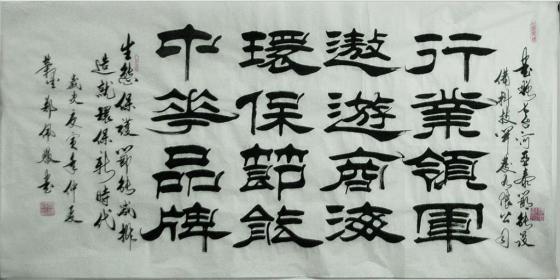 書贈七台河亞泰節能設
備科技開發有限公司
行業領軍
遨遊商海
環保節能
中華品牌
生態保護節能減排
造就環保新時代
歲次庚寅年仲夏
書